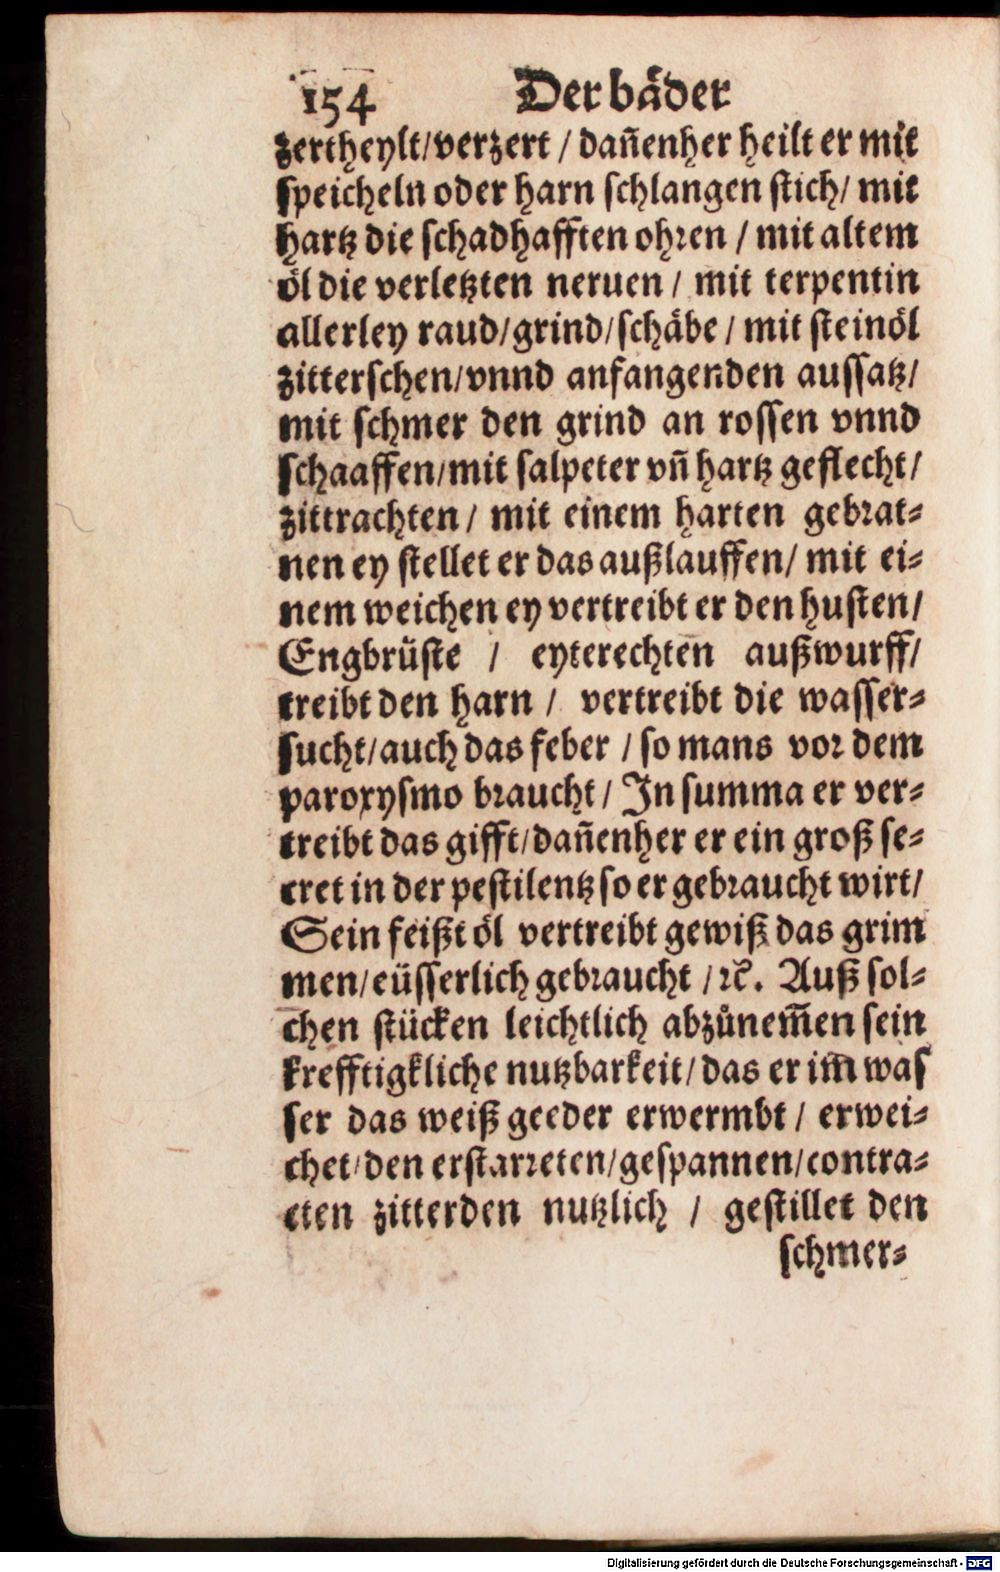 154 Der bäder
zertheylt/verzert / dañenher heilt er mit
speicheln oder harn schlangen stich/ mit
hartz die schadhafften ohren / mit altem
öl die verletzten neruen / mit terpentin
allerley raud/grind/schäbe / mit steinöl
zitterschen/vnnd anfangenden aussatz/
mit schmer den grind an rossen vnnd
schaaffen/mit salpeter vñ hartz geflecht/
zittrachten / mit einem harten gebrat-
nen ey stellet er das außlauffen/ mit ei-
nem weichen ey vertreibt er den husten/
Engbrüste / eyterechten außwurff/
treibt den harn / vertreibt die wasser-
sucht/auch das feber / so mans vor dem
paroxysmo braucht / In summa er ver-
treibt das gifft/dañenher er ein groß se-
cret in der pestilentz so er gebraucht wirt/
Sein feißt öl vertreibt gewiß das grim
men/eüsserlich gebraucht /ꝛc. Auß sol-
chen stücken leichtlich abzůnem̃en sein
krefftigkliche nutzbarkeit/das er im̃ was
ser das weiß geeder erwermbt / erwei-
chet/den erstarreten/gespannen/contra-
cten zitterden nutzlich / gestillet den
schmer-
Digitalisierung gefördert durch die Deutsche Forschungsgemeinschaft - DFG